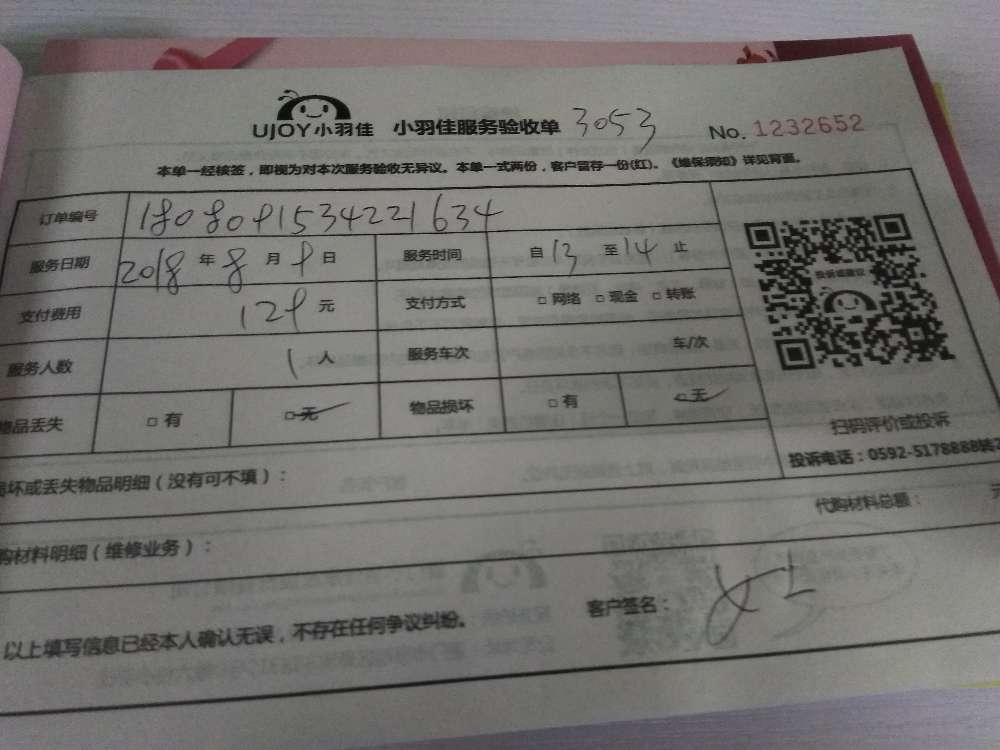 UJOY小羽佳 小羽佳服务验收单 3053 No. 1232652
本单一经核签，即视为对本次服务验收无异议。本单一式两份，客户留存一份(红)。《维保须知》详见背面。
订单编号 1808091534221634
服务日期 2018 年 8 月 9 日 服务时间 自 13 至 14 止
支付费用 129 元 支付方式 □ 网络 □ 现金 □ 转账
服务人数 1 人 服务车次 车/次
物品丢失 □ 有 □ 无 物品损坏 □ 有 □ 无
投诉或建议
扫码评价或投诉
投诉电话：0592-5178888转
损坏或丢失物品明细（没有可不填）：
代购材料总额： 元
购材料明细（维修业务）：
以上填写信息已经本人确认无误，不存在任何争议纠纷。 客户签名：